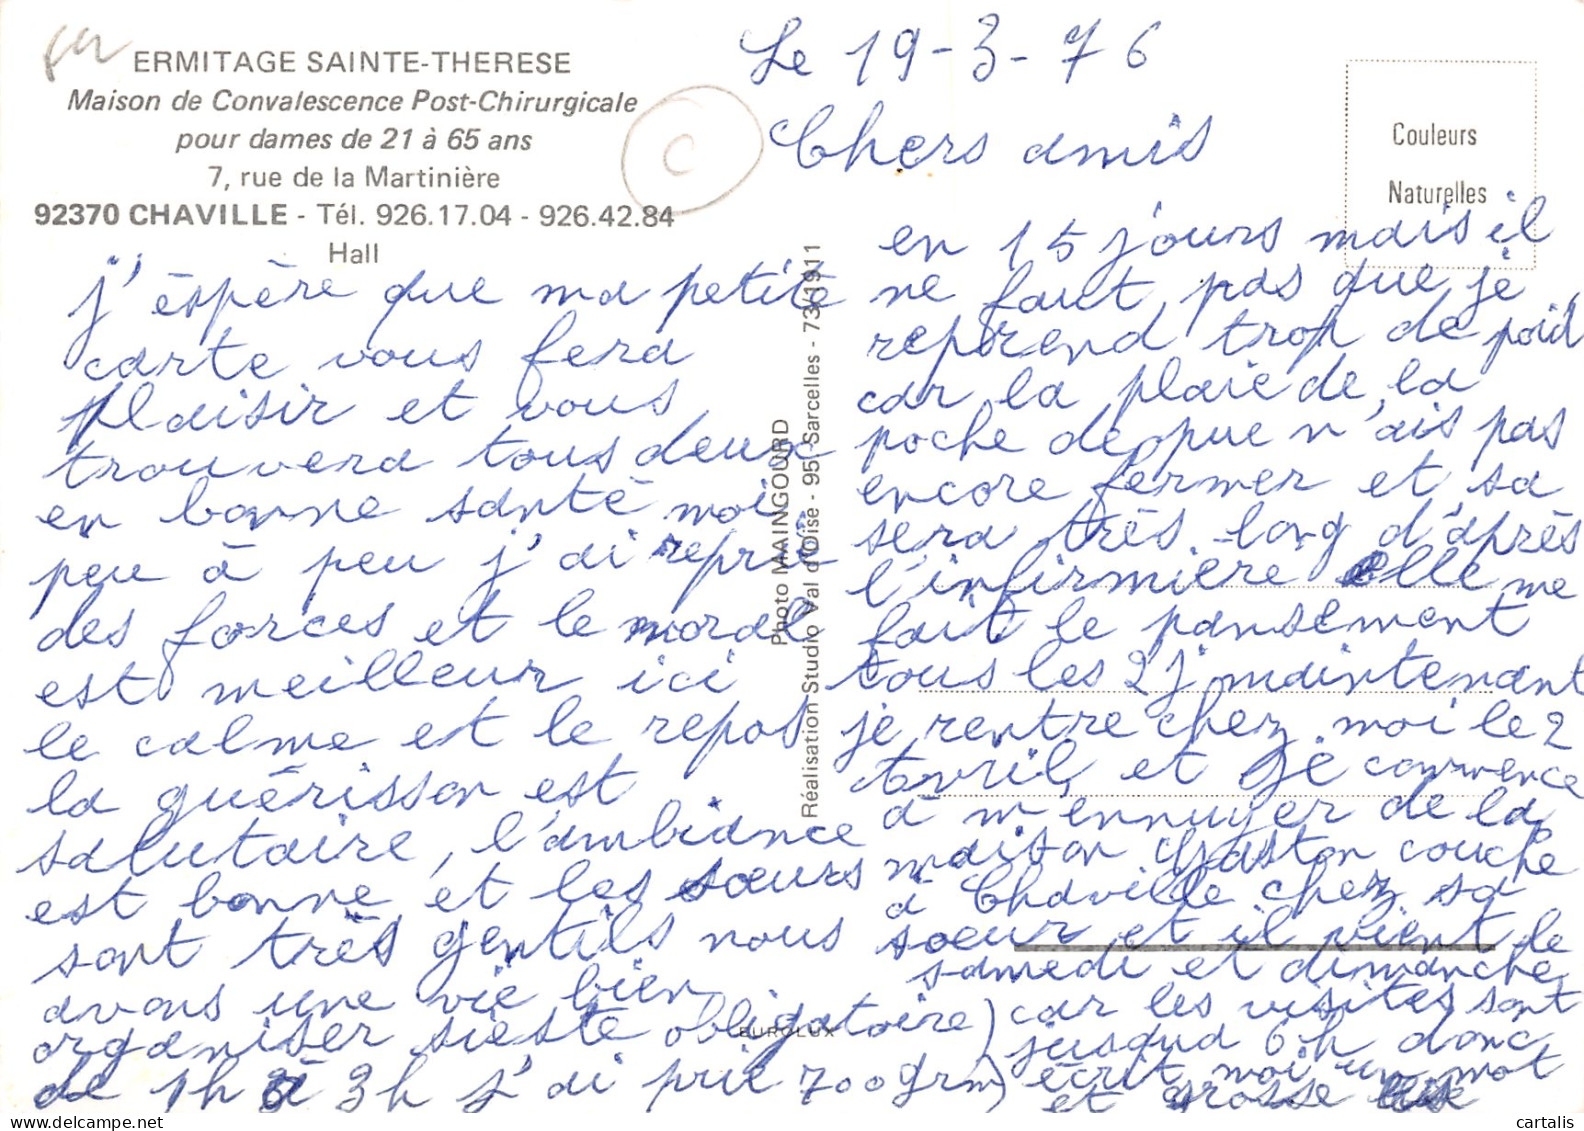 ERMITAGE SAINTE-THERESE
Maison de Convalescence Post-Chirurgicale
pour dames de 21 à 65 ans
7, rue de la Martinière
92370 CHAVILLE - Tél. 926.17.04 - 926.42.84
Hall
Le 19-3-76
Chers amis
j'éspère que ma petite
carte vous fera
plaisir et vous
trouvera tous deux
en bonne santé moi
peu à peu j'ai repris
des forces et le moral
est meilleur ici
le calme et le repos
la guérisson est
salutaire, l'ambiance
est bonne et les sœurs
sont très gentils nous
avons une vie bien
organiser sieste obligatoire
de 1h à 3h j'ai prit 700grm
en 15 jours mais il
ne faut pas que je
reprend trop de poid
car la plaie de la
poche de que n'ais pas
encore fermer et sa
sera très long d'après
l'infirmière elle me
fait le pansement
tous les 2 j maintenant
je rentre chez moi le 2
Avril et je commence
à m'ennuyer de la
maison Gaston couche
à Chaville chez sa
soeur et il vient le
samedi et dimanche
car les visites sont
jusqua 6 h donc
écrit moi un mot
et grosse bise
Couleurs
Naturelles
Photo MAINGOURD
Réalisation Studio Val d'Oise - 95-Sarcelles - 73/1911
EUROLUX
cartalis